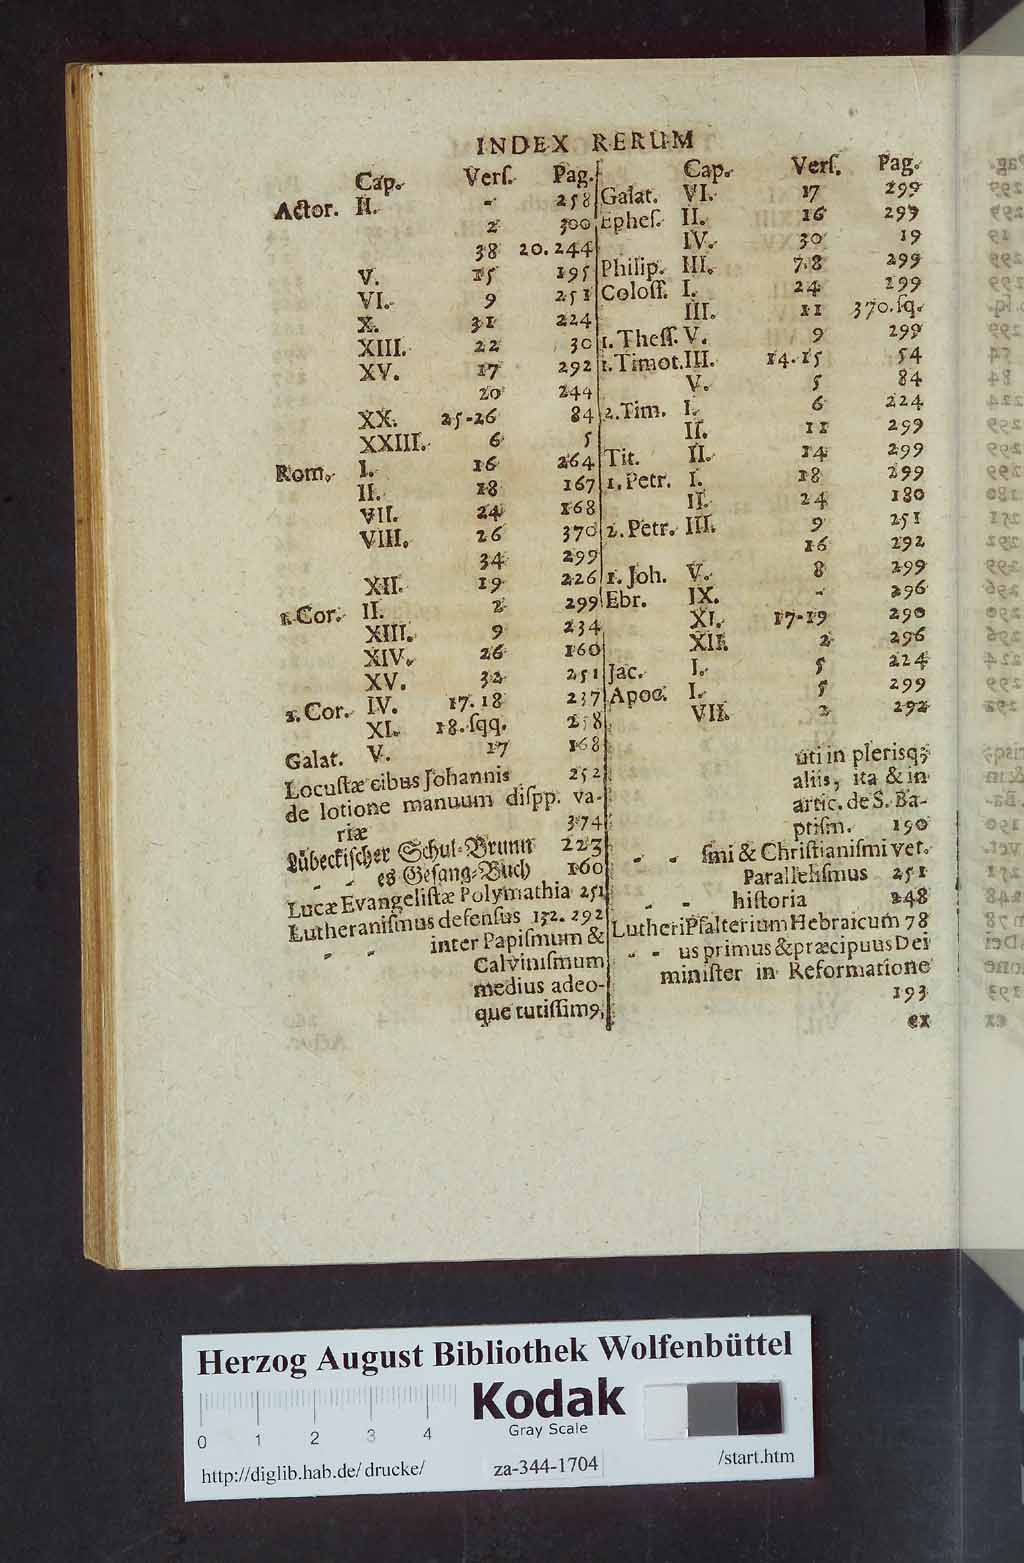 INDEX RERUM
Cap. Verſ. Pag.
Actor. II. - 258
2 300
38 20. 244
V. 15 195
VI. 9 251
X. 31 224
XIII. 22 30
XV. 17 292
20 244
XX. 25-26 84
XXIII. 6 5
Rom. I. 16 264
II. 18 167
VII. 24 168
VIII. 26 370
34 299
XII. 19 226
1. Cor. II. 2 299
XIII. 9 234
XIV. 26 160
XV. 32 251
2. Cor. IV. 17. 18 237
XI. 18. ſqq. 258
Galat. V. 17 168
Locuſtæ cibus Johannis 252
de lotione manuum diſpp. va-
riæ 374
Lübeckiſcher Schul-Brunn 223
- - es Geſang-Buch 160
Lucæ Evangeliſtæ Polymathia 251
Lutheraniſmus defenſus 152. 292
- - inter Papiſmum &
Calviniſmum
medius adeo-
que tutiſſimꝰ,
Cap. Verſ. Pag.
Galat. VI. 17 299
Epheſ. II. 16 299
IV. 30 19
Philip. III. 7.8 299
Coloſſ. I. 24 299
III. 11 370. ſq.
1. Theſſ. V. 9 299
1. Timot. III. 14. 15 54
V. 5 84
2. Tim. I. 6 224
II. 11 299
Tit. II. 14 299
1. Petr. I. 18 299
II. 24 180
2. Petr. III. 9 251
16 292
1. Joh. V. 8 299
Ebr. IX. - 296
XI. 17-19 290
XII. 2 296
Jac. I. 5 224
Apoc. I. 5 299
VII. 2 292
uti in plerisq;
aliis, ita & in
artic. de S. Ba-
ptiſm. 190
- - ſmi & Chriſtianiſmi vet.
Paralleliſmus 251
- - hiſtoria 248
Lutheri Pſalterium Hebraicum 78
- - us primus & præcipuus Dei
miniſter in Reformatione
193
ex
Herzog August Bibliothek Wolfenbüttel
Kodak
Gray Scale
0 1 2 3 4
http://diglib.hab.de/drucke/ za-344-1704 /start.htm